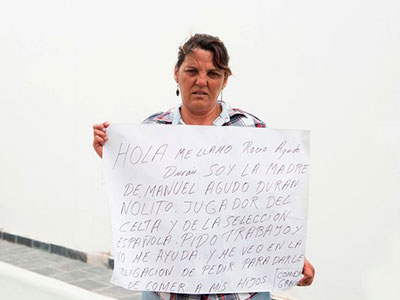 HOLA ME LLAMO Rocio Agudo
Duran SOY LA MADRE
DE MANUEL AGUDO DURAN
NOLITO. JUGADOR DEL
CELTA Y DE LA SELECCION
ESPAÑOLA. PIDO TRABAJO Y
NO ME AYUDA Y ME VEO EN LA
OBLIGACION DE PEDIR PARA DARLE
DE COMER A MIS HIJOS